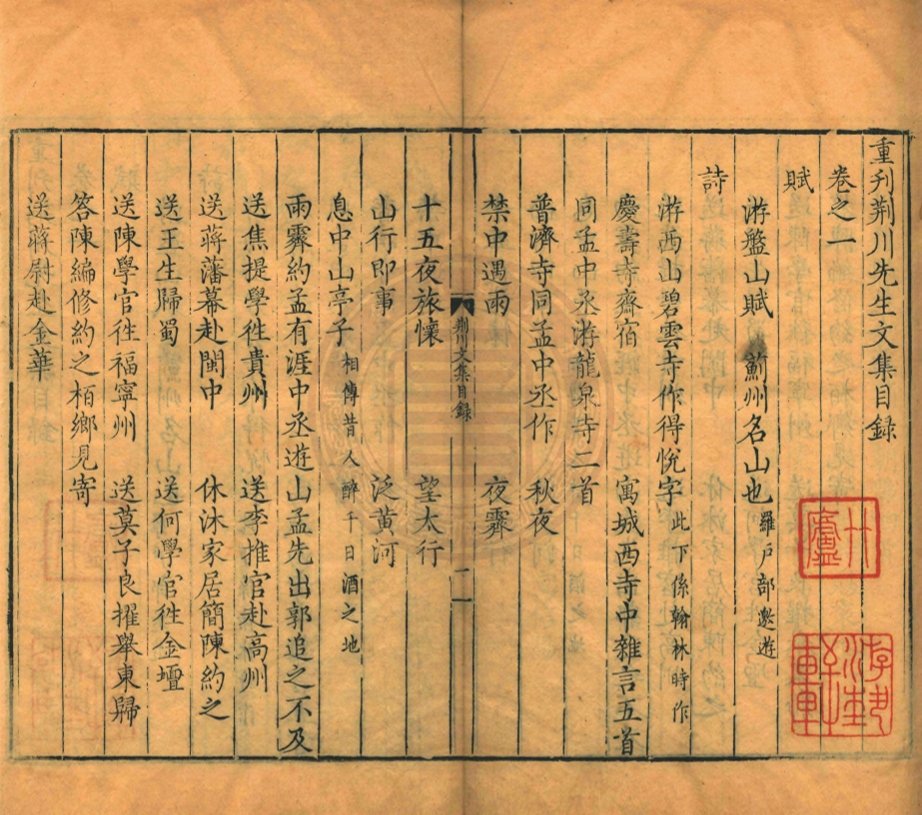 重刋荆川先生文集目録
卷之一
賦
游盤山賦 薊州名山也 羅戸部邀遊
詩
游西山碧雲寺作得悅字 此下係翰林時作
慶壽寺齋宿 寓城西寺中雜言五首
同孟中丞游龍泉寺二首
普濟寺同孟中丞作 秋夜
禁中遇雨 夜霽
荆川文集目録
一
十五夜旅懷 望太行
山行即事 泛黄河
息中山亭子 相傳昔人醉千日酒之地
雨霽約孟有涯中丞遊山孟先出郭追之不及
送焦提學徃貴州 送李推官赴高州
送蔣藩幕赴閩中 休沐家居簡陳約之
送王生歸蜀 送何學官徃金壇
送陳學官徃福寧州 送莫子良擢舉東歸
答陳編修約之栢鄉見寄
送蔣尉赴金華